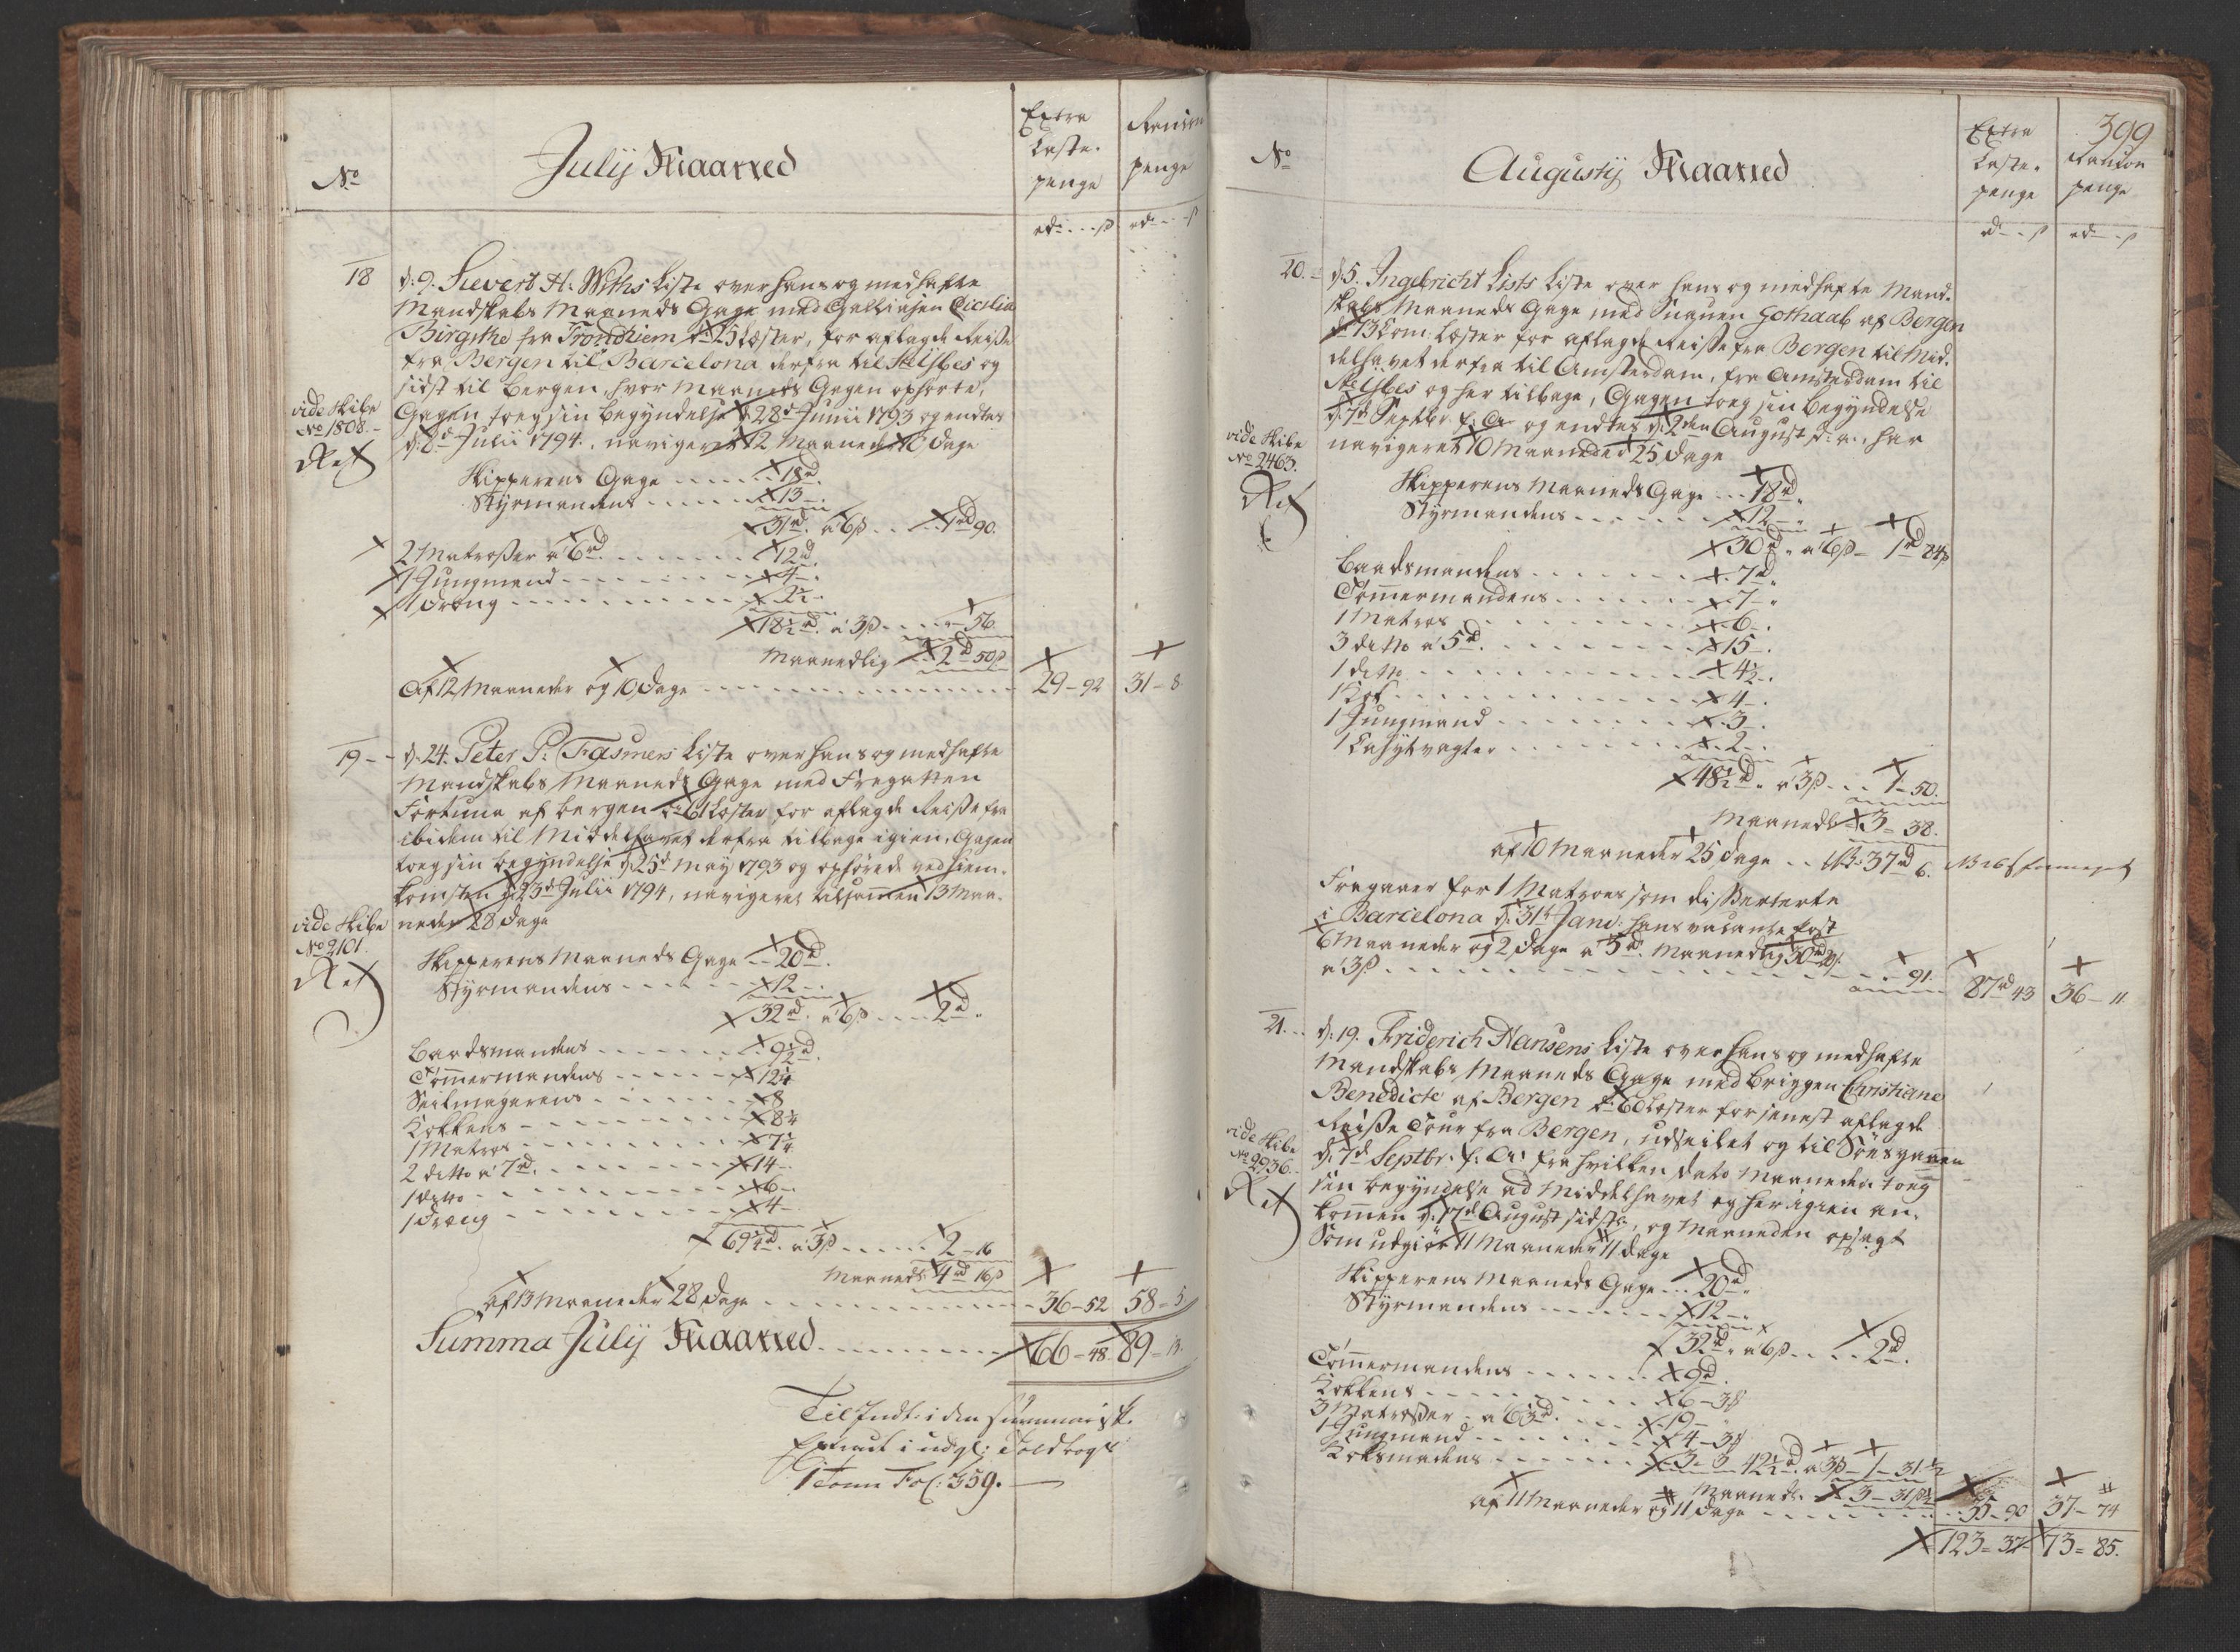 No
July Maaned
Extra
Laste-
penge
Rantion
penge
rd - - ß
rd - - ß
18
d: 9. Sievert H: Withs Liste over hans og medhafte
Mandskabs Maaneds Gage med Galliasen Cicilia
Birgithe fra Trondhiem dr: 25 Læster, for aflagde Reise
fra Bergen til Barcelona derfra til St Ybes og
sidst til Bergen, hvor Maaneds Gagen ophørte,
Gagen toeg sin Begyndelse d: 28d Junii 1793 og endtes
d: 8d Julii 1794. navigeret 12 Maaneder 10 Dage
vide Skibs
No 1808.
Skipperens Gage - - - 18rd.
Styrmandens - - - 13 -
31rd. a 6ß - - 1rd 90.
2 Matroser a 6rd. - - - 12rd.
1 Jungmand - - - 4 -
1 Dreng - - - 2½ -
18½rd. a 3ß - - - 56
Maanedlig 2rd 50ß
Af 12 Maaneder og 10 Dage - - - 29 - 92 31 - 8
19 - -
d: 24. Peter P: Fasmers Liste over hans og medhafte
Mandskabs Maaneds Gage med Fregatten
Fortuna af Bergen dr: 61 Læster for aflagde Reise fra
ibidem til Middelhavet derfra tilbage igien, Gagen
toeg sin begyndelse d: 25d May 1793 og ophørede ved hiem-
komsten d: 23d Julii 1794, navigeret tilsammen 13 Maa-
neder 28 Dage
vide Skibs
No 2101.
Skipperens Maaneds Gage - - 20rd.
Styrmandens - - - 12 -
32rd. a 6ß - - - 2rd.
Baadsmandens - - - 9½rd.
Tømmermandens - - - 12¼
Seilmagerens - - - 8
Kokkens - - - 8¼
1 Matros - - - 7¼
2 ditto a 7rd. - - - 14 -
1 ditto - - - 6 -
1 Dreng - - - 4 -
69¼rd. a 3ß - - - 2 - 16
Maaneds 4rd 16ß
af 13 Maaneder 28 Dage - - - 36 - 52 58 - 5
Summa July Maaned - - - 66 - 48. 89 - 13.
Til Indt: i den summarisk:
Extract i udgl: Toldbogs
1 Tom Fol: 359.
No
Augustij Maaned
Extra
Laste-
penge
399
Rantion
penge
rd - - ß
rd - - ß
20. -
d: 5. Ingebricht Lists Liste over hans og medhafte Mand-
skabs Maaneds Gage med Snauen Gothaab af Bergen
dr: 73 Com: Læster for aflagde Reise fra Bergen til Mid-
delhavet derfra til Amsterdam, fra Amsterdam til
St Ybes og her tilbage, Gagen toeg sin begyndelse
d: 7d Septbr: f: A: og endtes d: 2den August d: a:, har
navigeret 10 Maaneder 25 Dage
vide Skibs
No 2463.
Skipperens Maaneds Gage - - 18rd.
Styrmandens - - - 12 -
30rd. a 6ß - 1rd 84ß
Baadsmandens - - - 7rd.
Tømmermandens - - - 7 -
1 Matros - - - 6 -
3 ditto a 5rd. - - - 15 -
1 ditto - - - 4½ -
1 Kok - - - 4 -
1 Jungmand - - - 3 -
1 Cahytvagter - - - 2 -
48½rd. a 3ß - - 1 - 50.
Maanedl: 3 = 38.
af 10 Maaneder 25 Dage - - 37rd 6.
Fragaaer for 1 Matroes som disserterte
i Barcelona d: 31t Janv: hans vacante kost
6 Maaneder og 2 Dage a 5rd. Maanedlig 30rd
a 3ß - - - 91. 87rd 43 36 - 11
21. - -
d: 19. Friderich Hansens Liste over hans og medhafte
Mandskabs Maaneds Gage med Briggen Christiane
Benedicte af Bergen dr: 60 Læster for senest aflagde
Reise Tour fra Bergen, udseilet og til Søes gaaen
d: 7d Septbr: f: A: fra hvilken dato Maaneden toeg
sin begyndelse ad Middelhavet og her igien an-
kommen d: 17d August sidstl:, og Maaneden opsagt
Som udgiør 11 Maaneder 11 Dage
vide Skibs
No 2936.
Skipperens Maaneds Gage - - 20rd.
Styrmandens - - - 12 -
32rd. a 6ß - - - 2rd.
Tømmermandens - - - 9rd.
Kokkens - - - 6 - 3ß
3 Matroser - a 6⅓rd. - - - 19 -
1 Jungmand - - - 4 - 3ß
Koksmadens - - - 3 - 3 42½rd. a 3ß - 1 - 31½
Maaneds 3 - 31ß½
af 11 Maaneder og 11 Dage - - - 35 - 90 37 - 74
123 = 37 73 = 85.